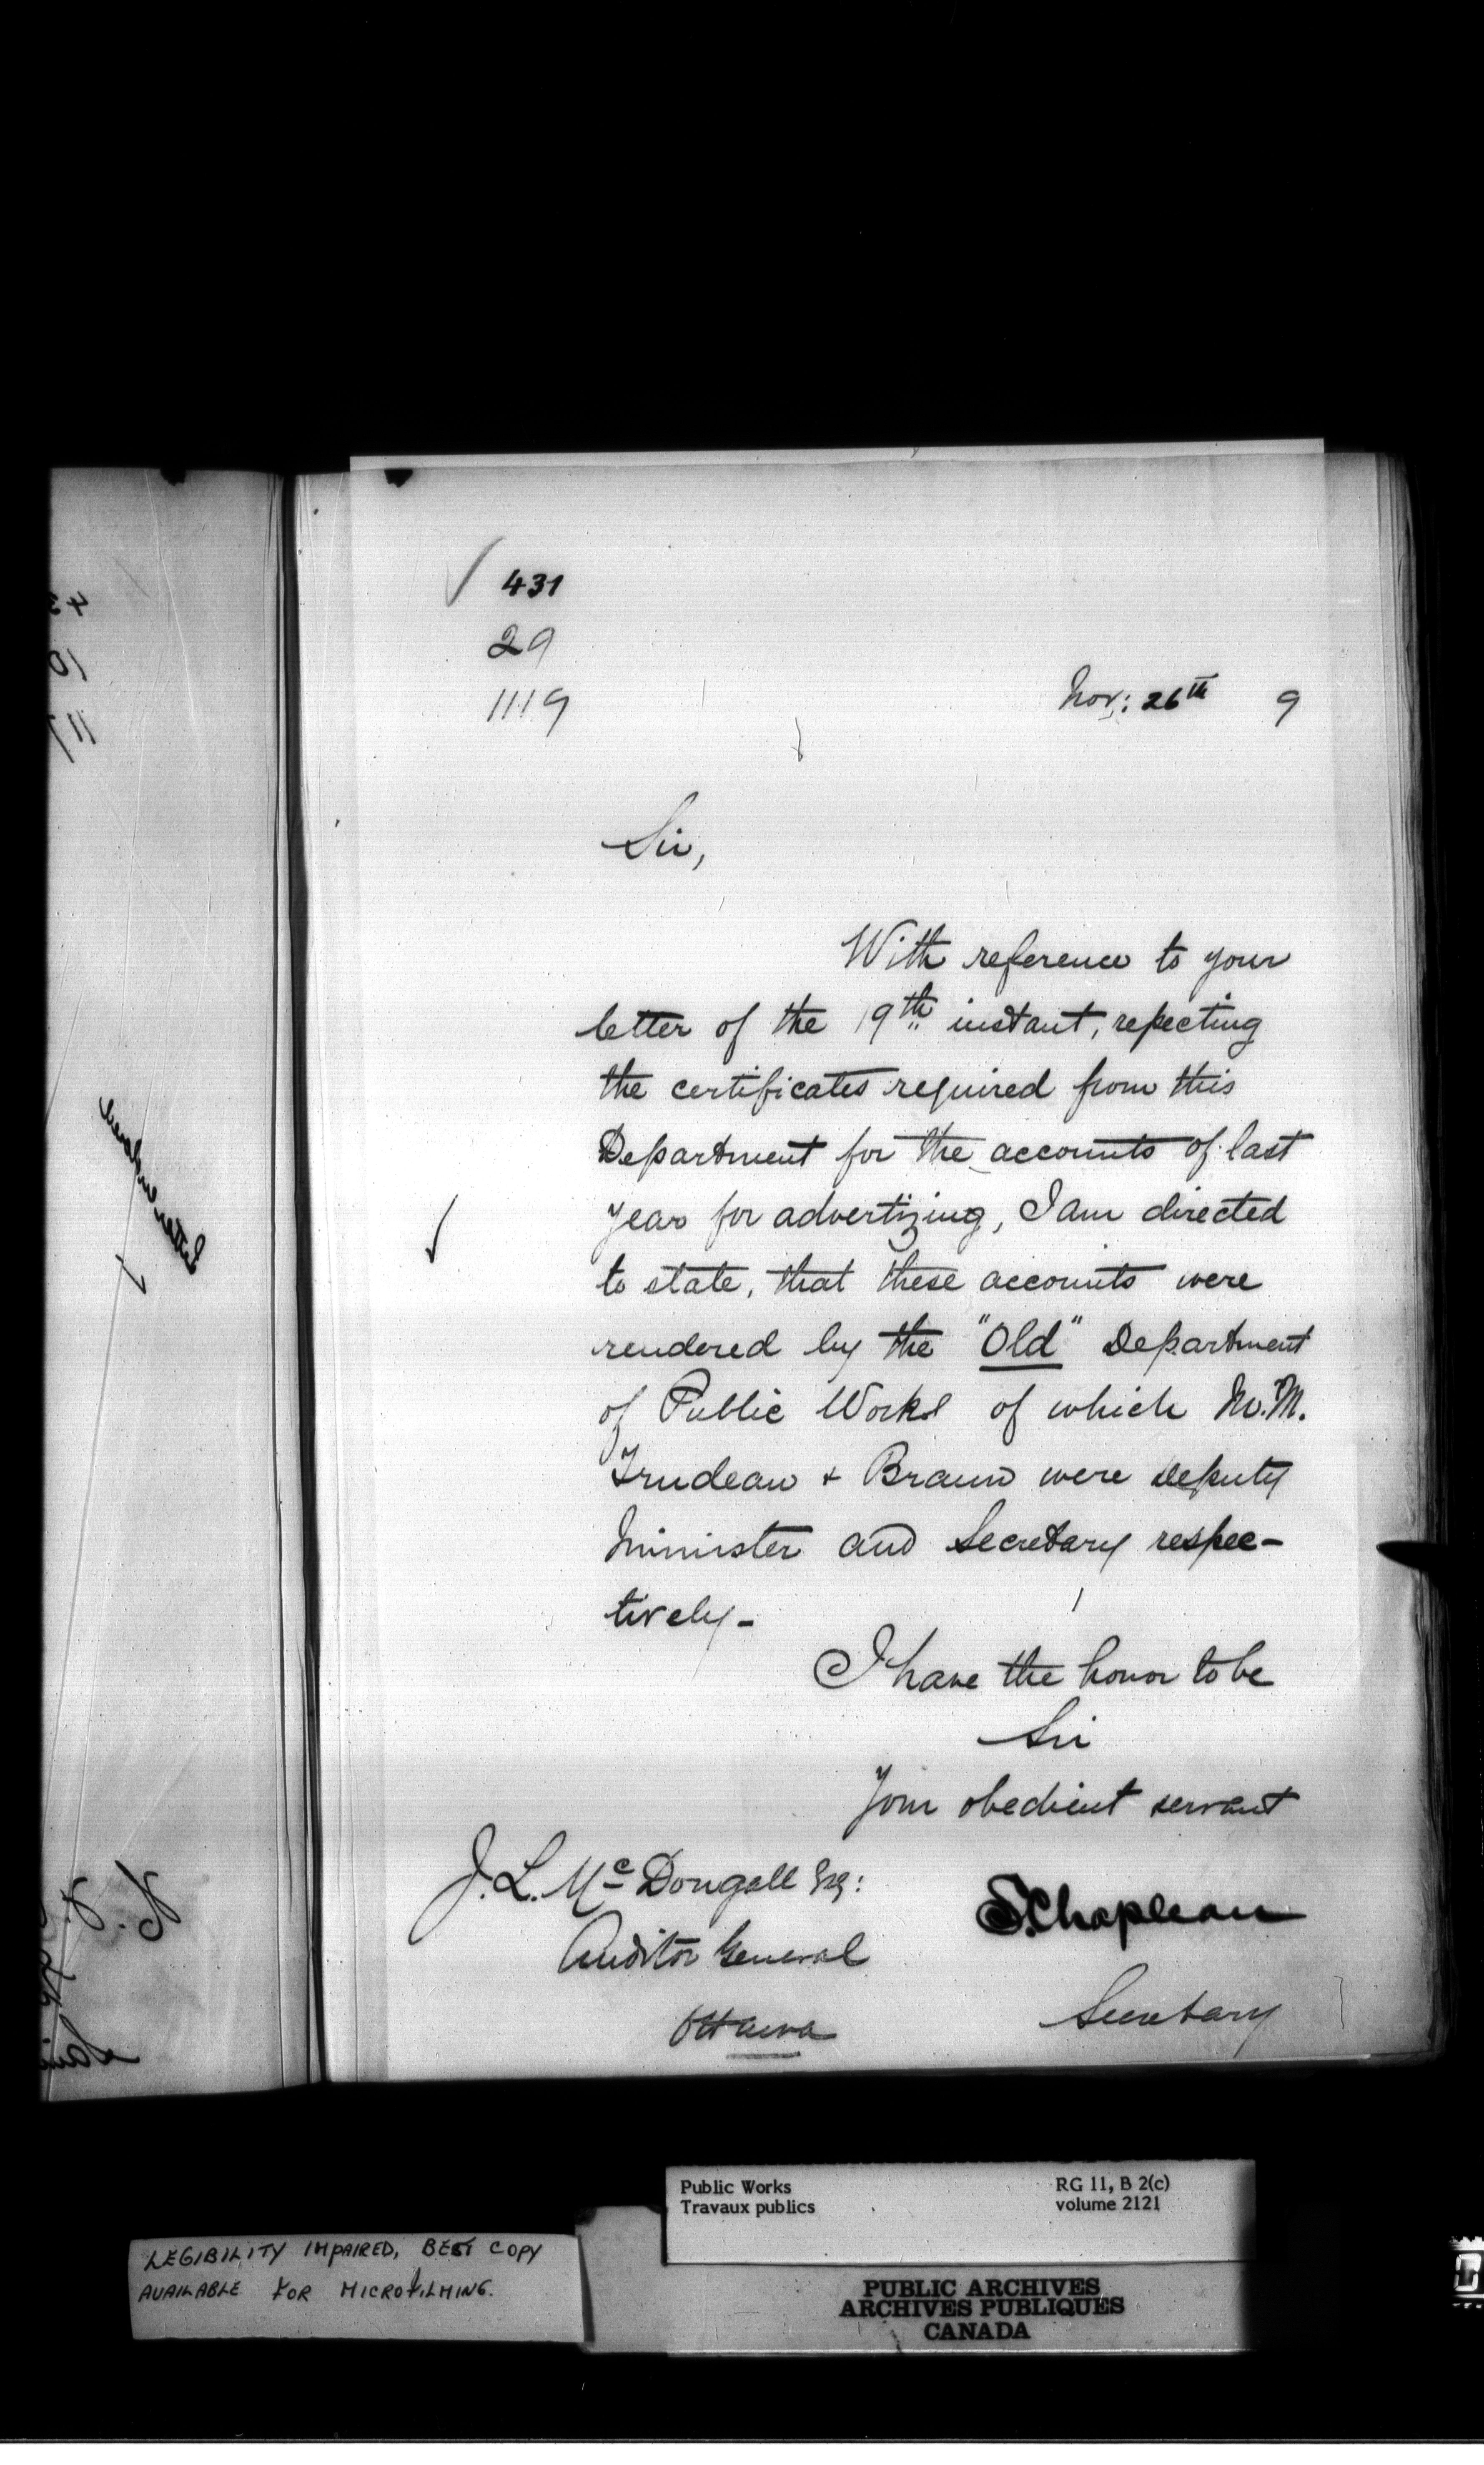 431
29
1119
Nov: 26th 9
Sir,
With reference to your
letter of the 19th instant, repecting
the certificates required from this
Department for the accounts of last
year for advertizing, I am directed
to state, that these accounts were
rendered by the "Old" Department
of Public Works of which M.M.
Trudeau + Braun were Deputy
Minister and Secretary respec-
tively-
I have the honor to be
Sir
Your obedient servant
J. L. McDougall Esq:
Auditor General
Ottawa
S. Chapleau
Secretary
Public Works
Travaux publics
RG 11, B 2(c)
volume 2121
LEGIBILITY IMPAIRED, BEST COPY
AVAILABLE FOR MICROFILMING.
PUBLIC ARCHIVES
ARCHIVES PUBLIQUES
CANADA